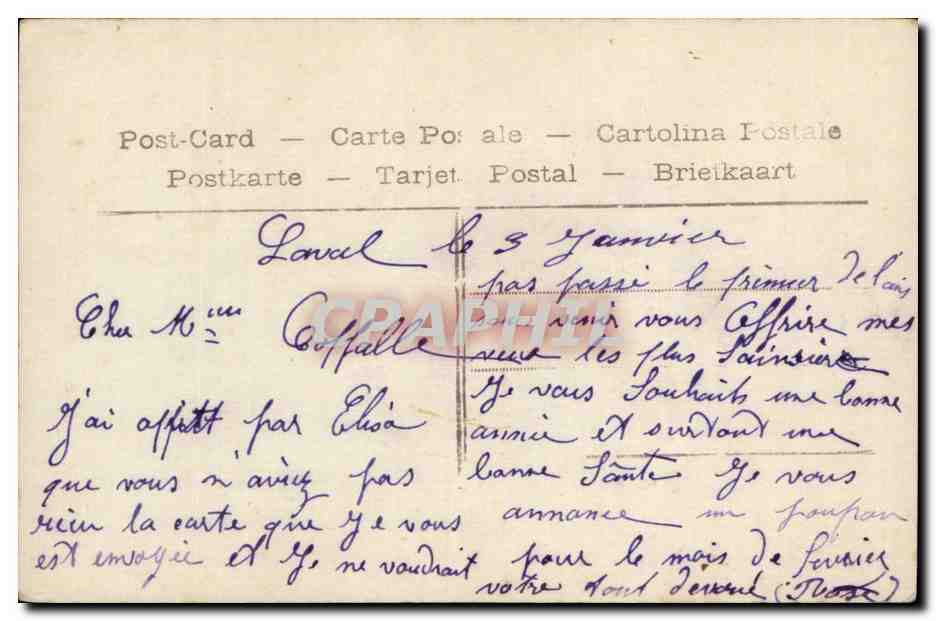 Post-Card — Carte Pos ale — Cartolina Postale
Postkarte — Tarjet Postal — Briefkaart
Laval le 3 Janvier
Cher Mme Coffalle
J'ai affitt par Elisa
que vous n'aviez pas
recu la carte que Je vous
est envoyee et Je ne voudrait
pas passé le premier de l'ans
sans venir vous Offrire mes
veux les plus Sainsière
Je vous Souhaits une bonne
année et surtout une
bonne Sânté Je vous
annonce un poupon
pour le mois de fevrier
votre tout devoué (Rose)
CRAPHIL